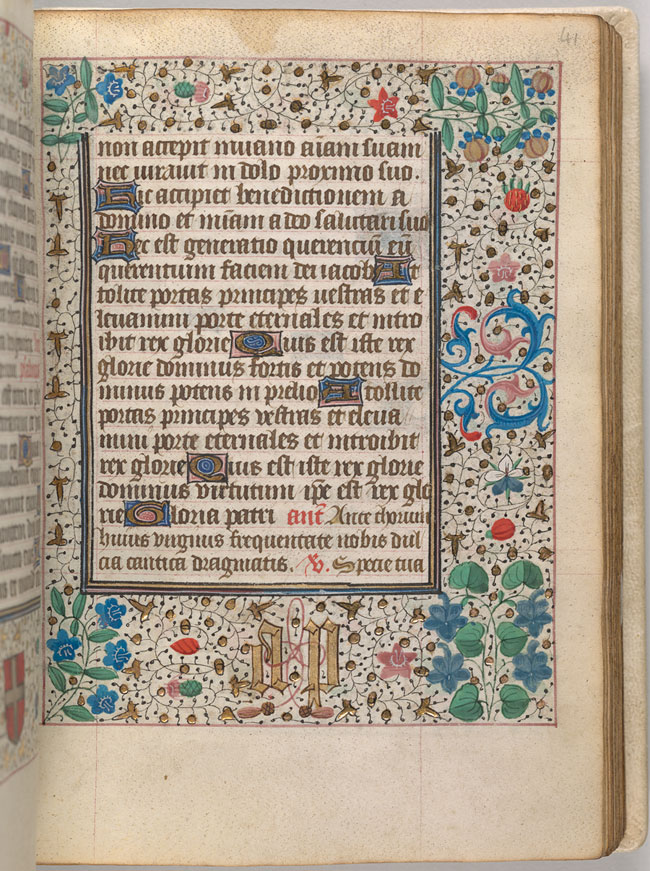 41
non accepit in uano aīam suam
nec iurauit in dolo proximo suo.
Hic accipiet benedictionem a
domino et mīam a deo salutari suo
Hec est generatio querenciū eū
querentium faciem dei iacob At
tolite portas principes uestras et e
leuamini porte eternales et intro
ibit rex glorie Quis est iste rex
glorie dominus fortis et potens do
minus potens in prelio Atollite
portas principes vestras et eleua
mini porte eternales et introibit
rex glorie Quis est iste rex glorie
dominus virtutum ip̄e est rex glo
rie Gloria patri ant̄ Ante thorum
huius virginis frequentate nobis dul
cia cantica dragmatis. V. Specie tua
a p